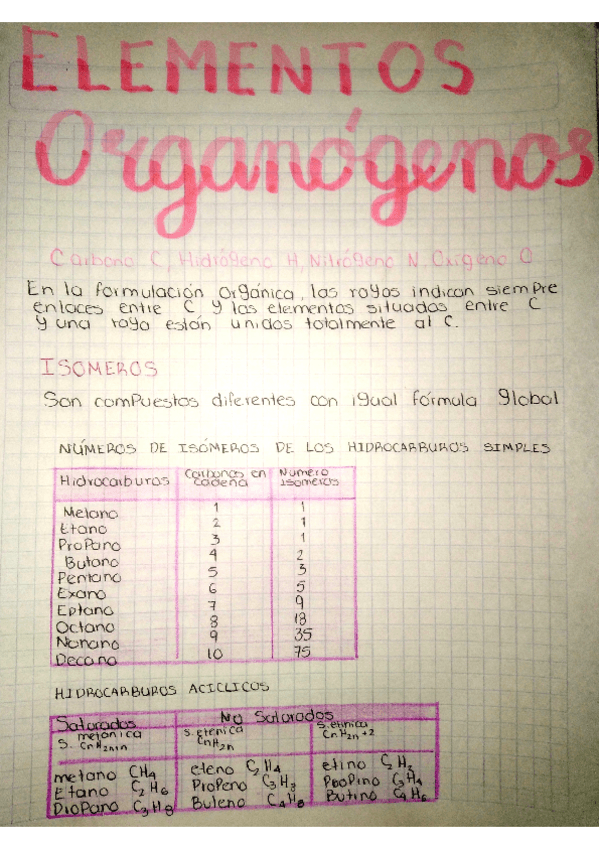 ELEMENTOS
Organógenos
Carbono C, Hidrógeno H, Nitrógeno N, Oxígeno O
En la formulación orgánica, las rayas indican siempre
enlaces entre C y los elementos situados entre C
y una raya están unidos totalmente al C.
ISOMEROS
Son compuestos diferentes con igual fórmula global
NÚMEROS DE ISÓMEROS DE LOS HIDROCARBUROS SIMPLES
Hidrocarburos Carbonos en cadena Numero isomeros
Metano 1 1
Etano 2 1
Propano 3 1
Butano 4 2
Pentano 5 3
Exano 6 5
Eptano 7 9
Octano 8 18
Nonano 9 35
Decano 10 75
HIDROCARBUROS ACICLICOS
Saturados No Saturados
S. metanica S. etenica S. etinica
CnH2n CnH2n+2
metano CH4 eteno C2H4 etino C2H2
Etano C2H6 Propeno C3H8 Propino C3H4
Propano C3H8 Buteno C4H8 Butino C4H6